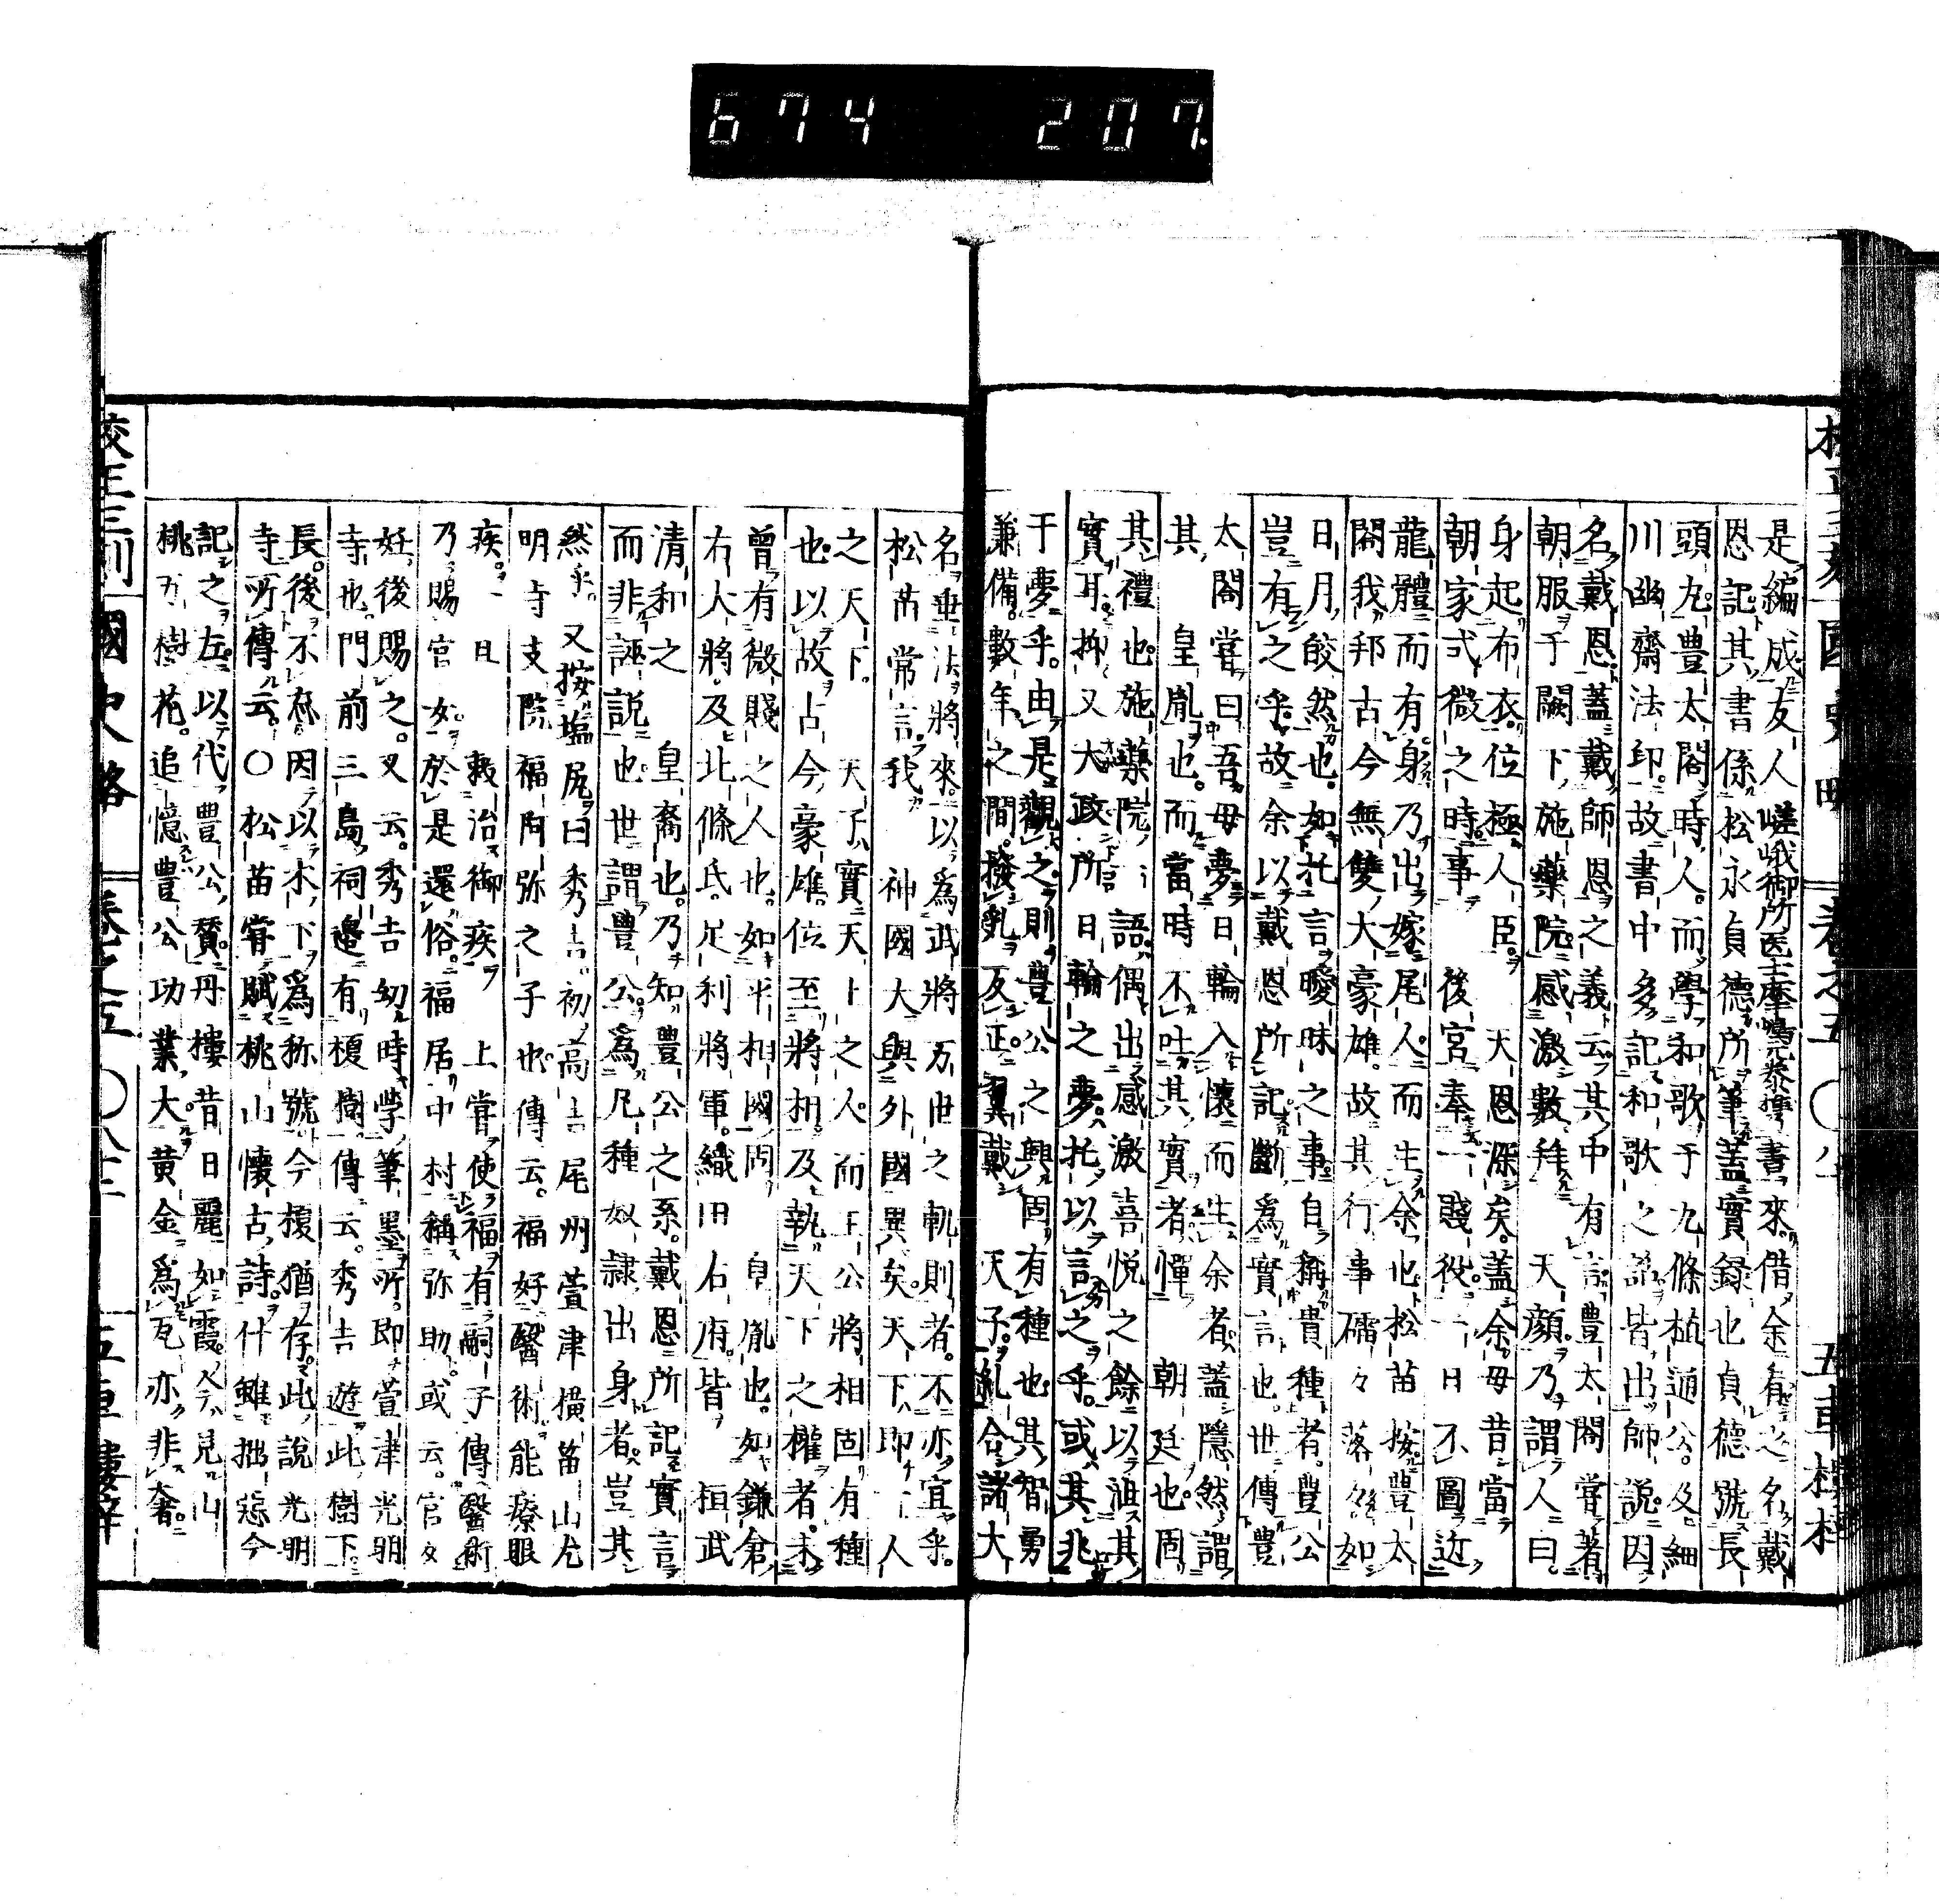 校正三刻 國史略 卷之五 〇八十 五車樓梓
是編成友人嵯峨御所医士座書來借余有之名戴
恩記其書係松永貞德所筆蓋實録也貞德號長
頭丸豊太閤時人而學和歌于九條植通公及細
川幽齋法印故書中多記和歌之說皆出師說因
名戴恩蓋戴師恩之義云其中有言豊太閤嘗著
朝服于闕下施藥院感激數拜 天顔乃謂人曰
身起布衣位極人臣 天恩深矣蓋余母昔當
朝家式微之時事 後宮奉一賤役一日不圖近
龍體而有身乃出嫁尾人而生余也松苗按豊太
閤我邦古今無雙大豪雄故其行事磊々落々如
日月皎然也如托言曖昧之事自稱貴種者豊公
豈有之乎故余以戴恩所記斷為實言也世傳豊
太閤嘗曰吾母夢日輪入懷而生余者蓋隱然謂
其 皇胤也而當時不吐其實者憚 朝廷也固
其禮也施藥院語偶出感激喜悦之餘以沮其
實耳抑又大政所日輪之夢托以言之乎或其兆
于夢乎由是觀之則豊公之興固有種也其智勇
兼備數年之間撥亂反正翼戴 天子糺合諸大
名垂法將來以為武將万世之軌則者不亦宜乎
松苗常言我 神國大與外國異矣天下即一人
之天下 天子實天上之人而王公將相固有種
也以故古今豪雄位至將相及執天下之權者未
曾有微賤之人也如平相國固 皇胤也如鎌倉
右大將及北條氏足利將軍織田右府皆 桓武
清和之 皇裔也乃知豊公之系戴恩所記實言
而非誣説也世謂豊公為凡種奴隷出身者豈其
然乎 又按塩尻曰秀吉初高吉尾州萱津横笛山光
明寺支院福阿弥之子也傳云福好醫術能療眼
疾一日 敕治御疾 上嘗使福有嗣子傳醫術
乃賜官女於是還俗福居中村稱弥助或云官女
妊後賜之又云秀吉幼時學筆墨所即萱津光明
寺也門前三島祠邊有榎樹傳云秀吉遊此樹下
長後不忝因以木下為称號今榎猶存此說光明
寺所傳云〇松苗嘗賦桃山懷古詩什雖拙惡今
記之左以代豊公賛丹樓昔日麗如霞今見山
桃万樹花追憶豊公功業大黄金為瓦亦非奢
校正三刻 國史略 卷之五 〇八十一 五車樓梓
674 207